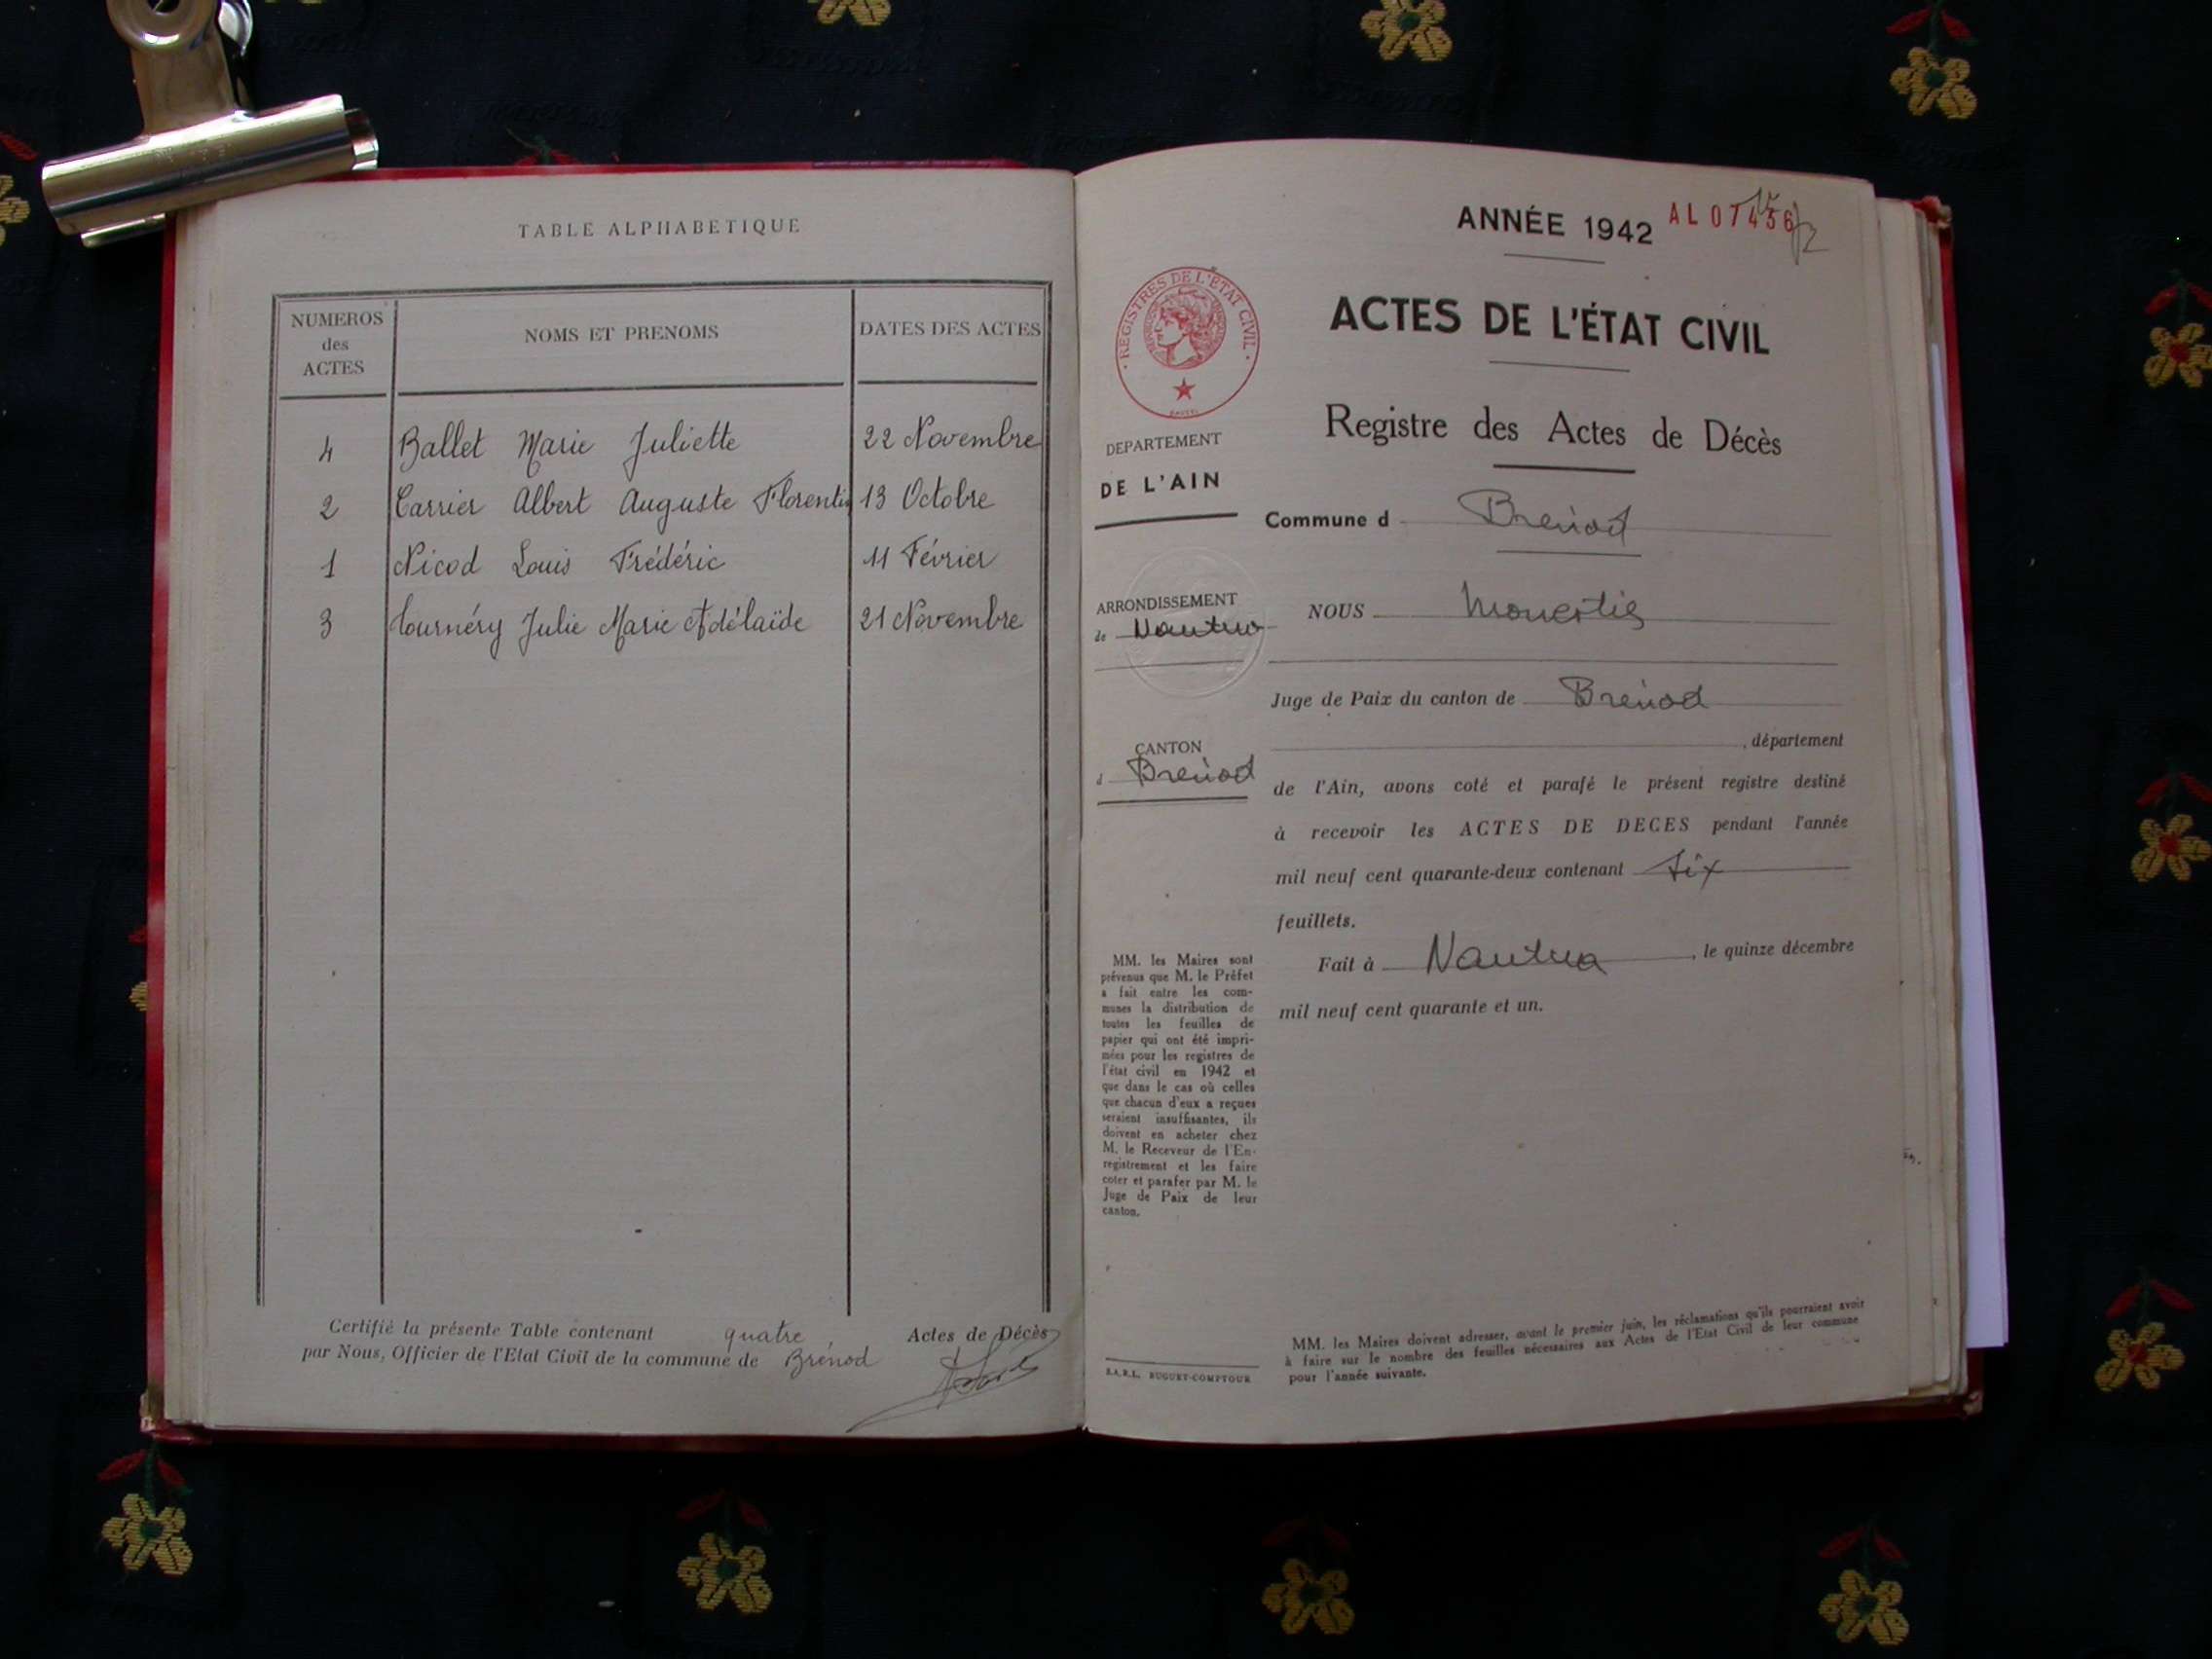 TABLE ALPHABETIQUE
NUMEROS des ACTES
NOMS ET PRENOMS
DATES DES ACTES
4 Ballet Marie Juliette 22 Novembre
2 Carrier Albert Auguste Florentin 13 Octobre
1 Nicod Louis Frédéric 11 Février
3 Tournéry Julie Marie Adélaïde 21 Novembre
Certifié la présente Table contenant quatre Actes de Décès
par Nous, Officier de l'Etat Civil de la commune de Brénod
ANNÉE 1942
AL 07456
REGISTRES DE L'ÉTAT CIVIL
ACTES DE L'ÉTAT CIVIL
Registre des Actes de Décès
DEPARTEMENT
DE L'AIN
Commune d Brénod
ARRONDISSEMENT
de Nantua
NOUS
Juge de Paix du canton de Brénod
, département
CANTON
d Brénod
de l'Ain, avons coté et parafé le présent registre destiné
à recevoir les ACTES DE DECES pendant l'année
mil neuf cent quarante-deux contenant six
feuillets.
Fait à Nantua, le quinze décembre
mil neuf cent quarante et un.
MM. les Maires sont
prévenus que M. le Préfet
a fait entre les com-
munes la distribution de
toutes les feuilles de
papier qui ont été impri-
mées pour les registres de
l'état civil en 1942 et
que dans le cas où celles
que chacun d'eux a reçues
seraient insuffisantes, ils
doivent en acheter chez
M. le Receveur de l'En-
registrement et les faire
coter et parafer par M. le
Juge de Paix de leur
canton.
S.A.R.L. BUGUET-COMPTOUR
MM. les Maires doivent adresser, avant le premier juin, les réclamations qu'ils pourraient avoir
à faire sur le nombre des feuilles nécessaires aux Actes de l'Etat Civil de leur commune
pour l'année suivante.